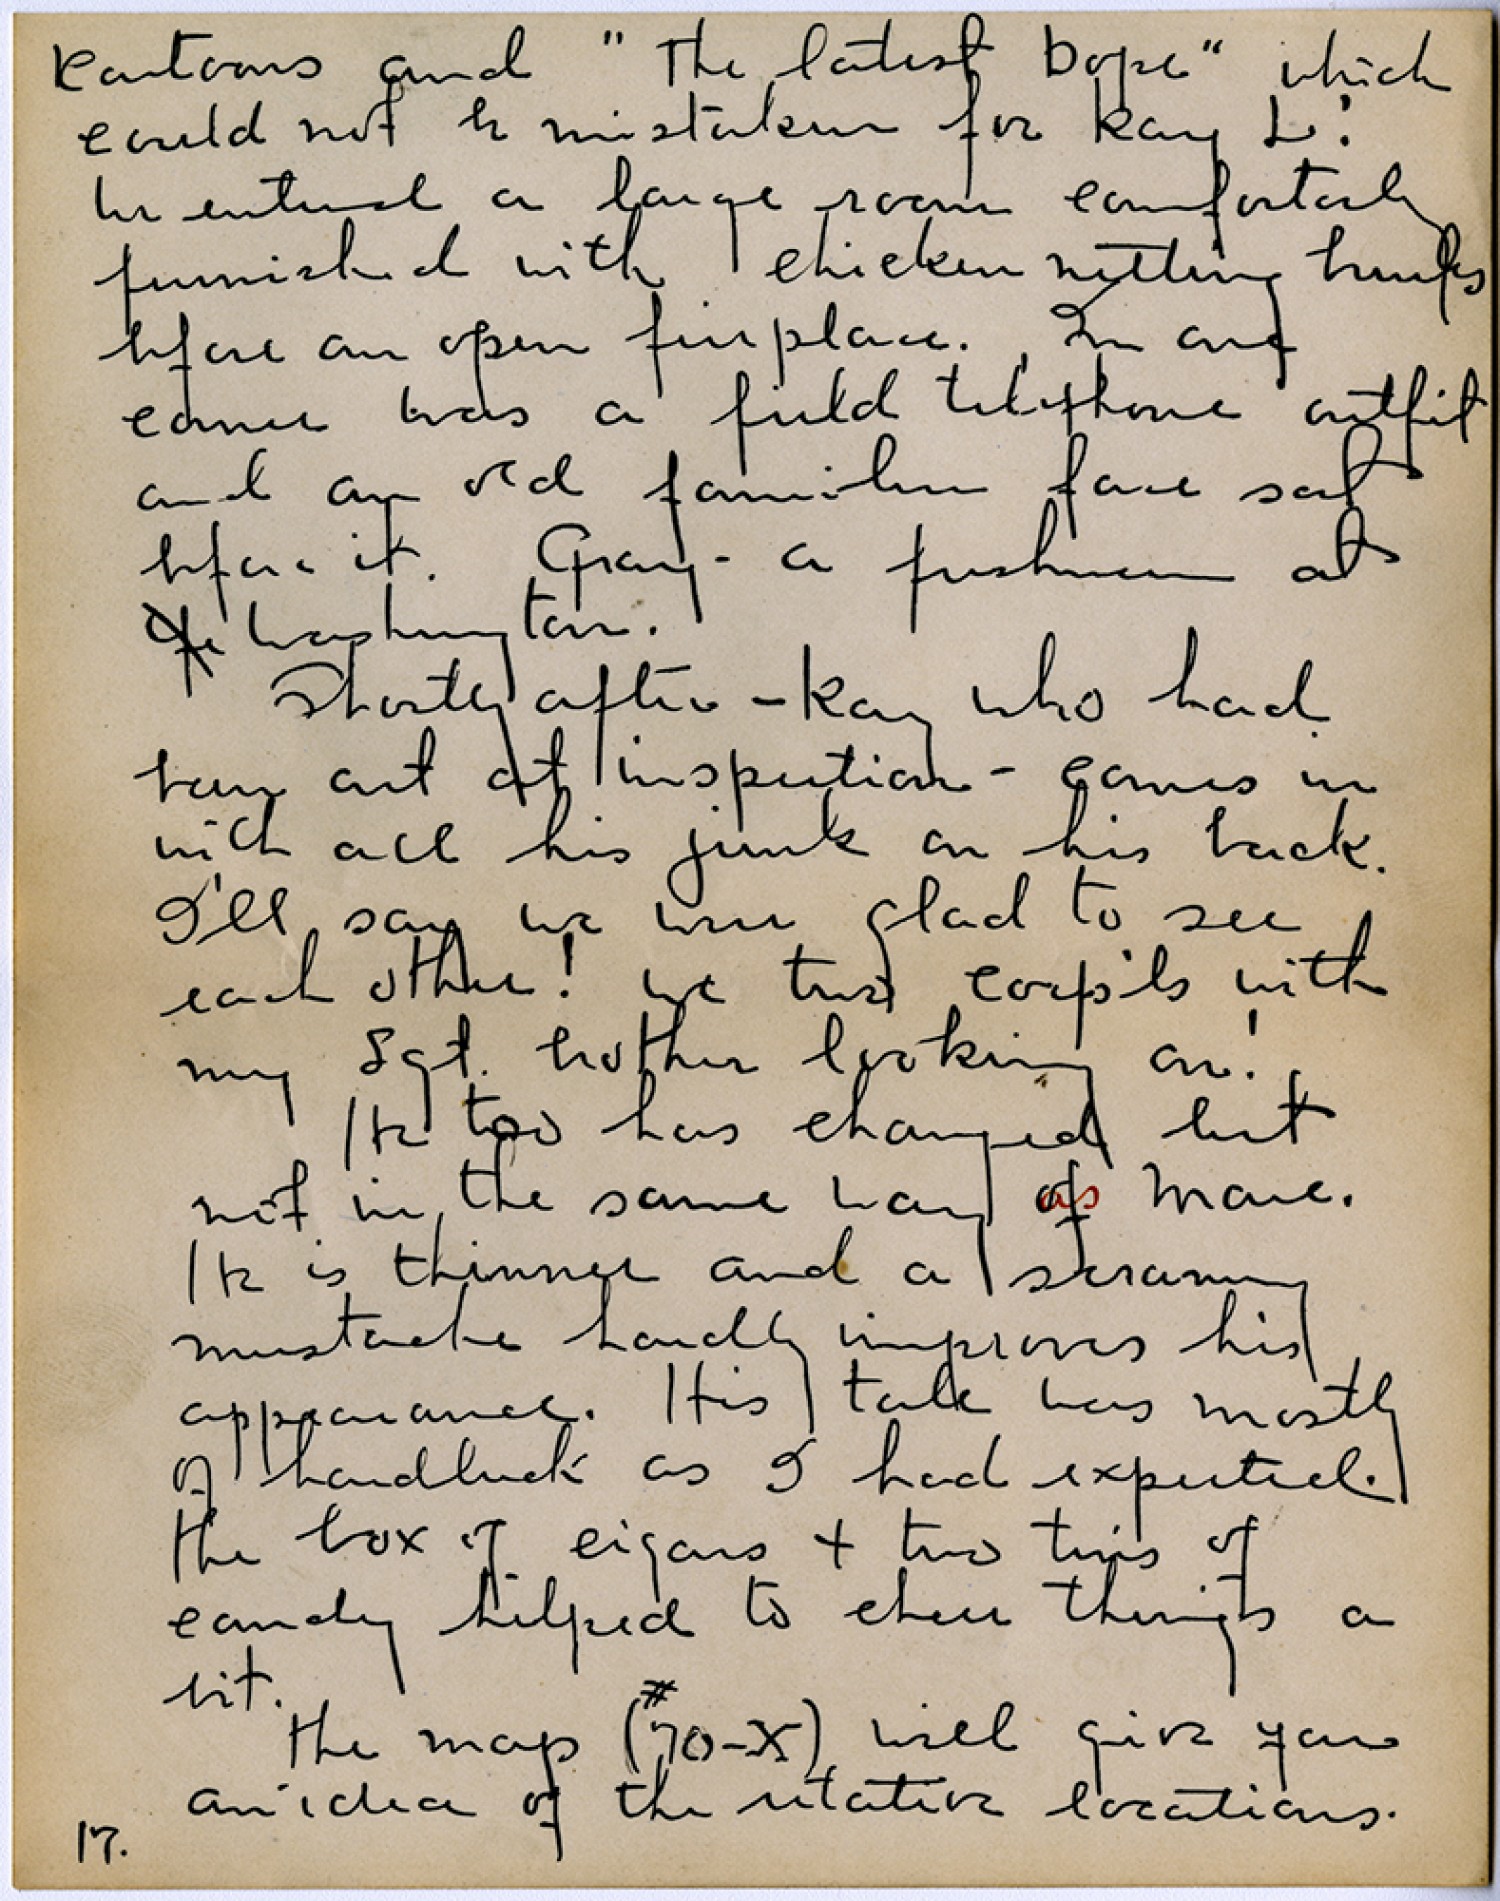 Kartoons and "The latest Dope" which
could not be mistaken for Kay L!
We entered a large room comfortably
furnished with chicken netting bunks
before an open fireplace. In one
corner was a field telephone outfit
and an old familiar face sat
before it. Gray - a freshman at
Washington.
Shortly after - Kay who had
been out at inspection - comes in
with all his junk on his back.
I'll say we were glad to see
each other! We two corp'ls with
my Sgt. brother looking on!
He too has changed but
not in the same way as
He is thinner and a scrawny
mustache hardly improves his
appearance. His talk was mostly
of hardluck as I had expected.
The box of cigars + two tins of
candy helped to cheer things a
bit.
The map (#70-X) will give you
an idea of the relative locations.
17.